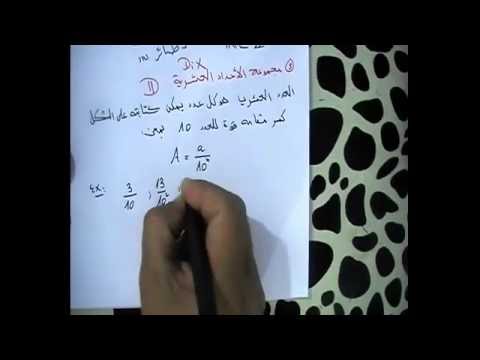 Dix
③ مجموعة الأعداد العشرية D
العدد العشري هو كل عدد يمكن كتابته على الشكل
كسر مقامه قوة للعدد 10
A = a/10ⁿ
Ex: 3/10 ; 13/10²